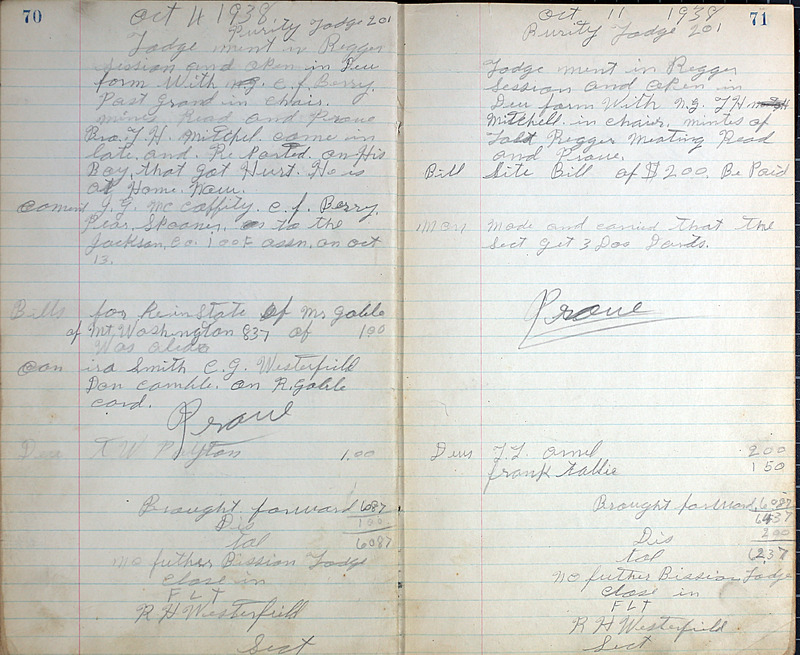 70
Oct 4 1938
Purity Lodge 201
Lodge ment in Regger
session and open in Deu
form With n.g. C.f. Berry.
Past Grand in chair.
mines Read and Prove
Bro. J. H. Mitchel come in
late and Re Ported on His
Boy that got Hurt. He is
at Home. Now.
coment J. G. McCaffity. C.f. Berry.
Pear. Spooner. as to the
Jackson, Co. I O O F assn. on oct
13.
Bills for ReinState of Mr Goble
of Mt Washington 837 of 1 00
Was aled
Com ira Smith C. G. Westerfield
Don camble. on R. Goble
card.
Prove
Deu K W Polyton 1.00
Brought forward 6087
Dis 1 00
tol 6087
no futher Bission Lodge
close in
F L T
R H Westerfield
Sect
71
Oct 11 1938
Purity Lodge 201
Lodge ment in Regger
Session and open in
Deu form With N.g. J H
Mitchell. in chair, mintes of
Last Regger Meating Read
and Prove.
Bill Lite Bill of $2.00. Be Paid
Mon Mode and carried that the
Sect get 3 Dos Dards.
Prove
Deus J. L. Amel 2 00
frank Kallie 1 50
Brought forward 6087
6437
Dis 2 00
tol 6237
no futher Bission Lodge
close in
F L T
R H Westerfield
Sect